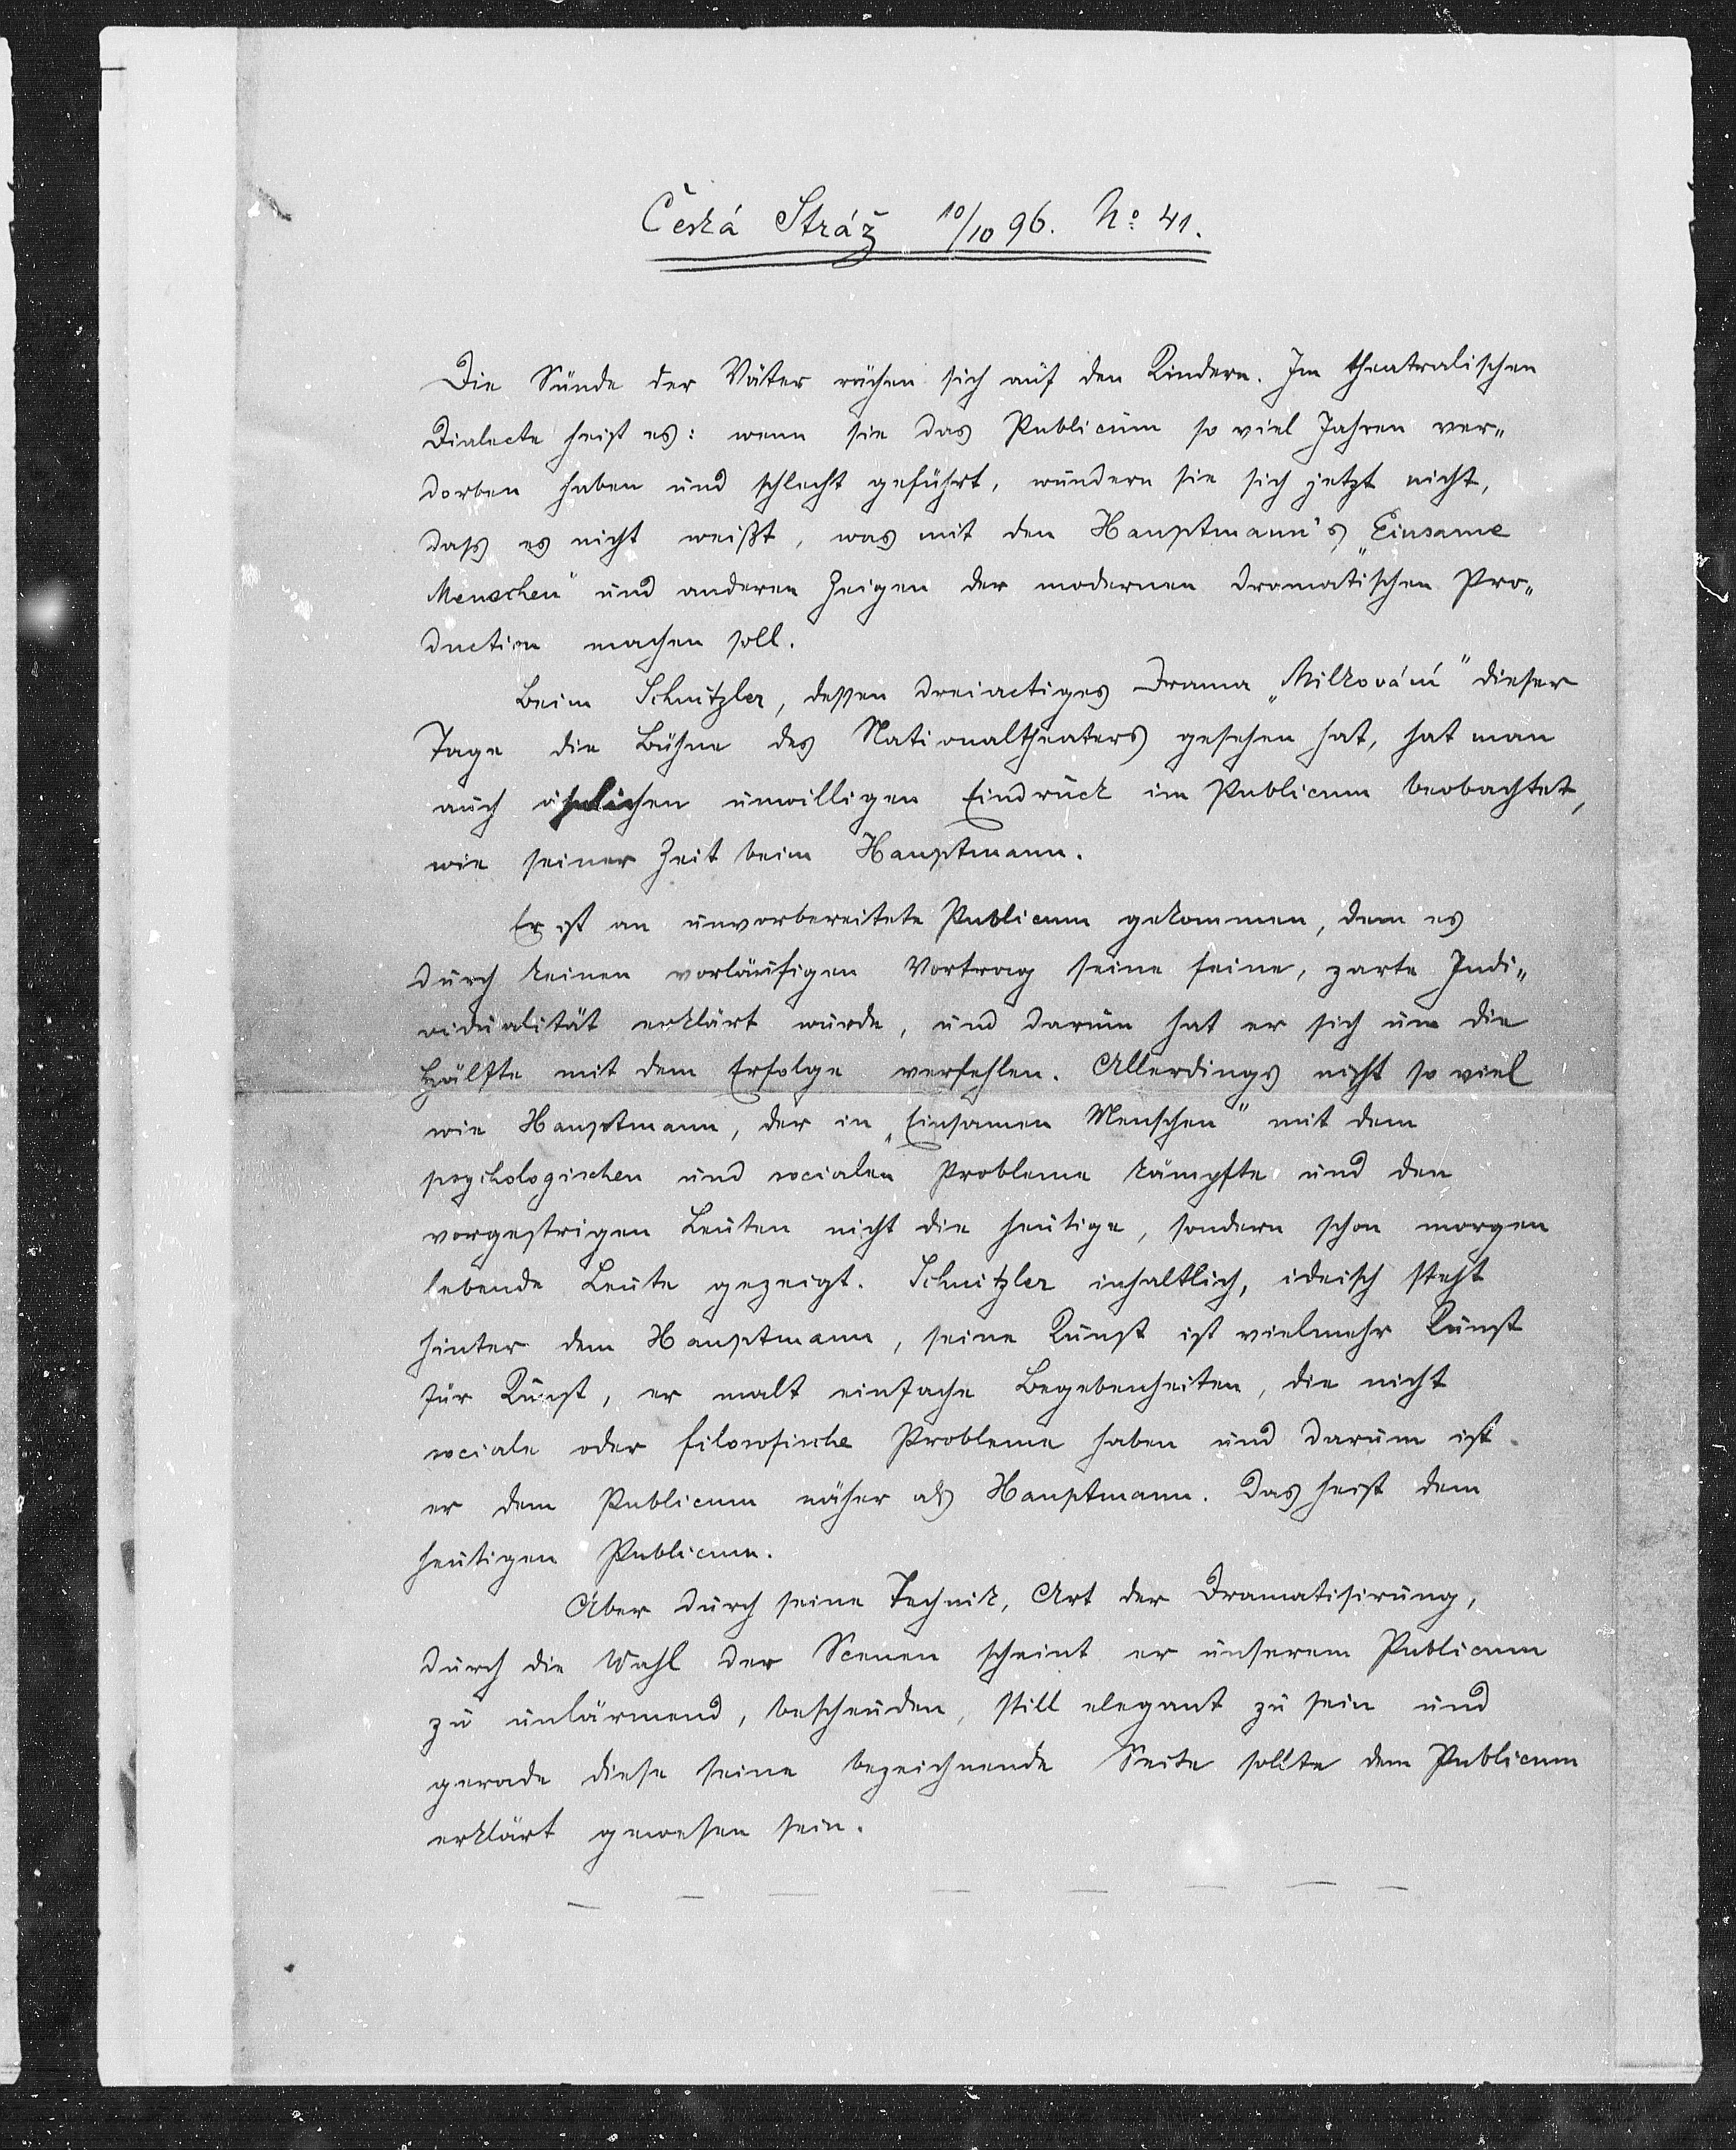 Česká Stráž 10/10 96. No. 41.
Die Sünde der Väter rächen sich auf den Kindern. Im theatralischen
Dialecte heist es: wenn sie das Publicum so viel Jahren ver„
dorben haben und schlecht geführt, wundern sie sich jetzt nicht,
dass es nicht weißt, was mit den Hauptmann's „Einsame
Menschen" und anderen Zeigen der modernen dramatischen Pro„
duction machen soll.
Beim Schnitzler, dessen dreiactiges Drama „Milkování" dieser
Tage die Bühne des Nationaltheaters gesehen hat, hat man
auch ähnlichen unwilligen Eindruck im Publicum beobachtet,
wie seiner Zeit beim Hauptmann.
Er ist an unvorbereitete Publicum gekommen, dem es
durch keinen vorläufigen Vortrag seine feine, zarte Indi„
vidualität erklärt wurde, und darum hat er sich um die
Hälfte mit dem Erfolge verfehlen. Allerdings nicht so viel
wie Hauptmann, der in „Einsamen Menschen" mit dem
psychologischen und socialen Probleme kämpfte und den
vorgestrigen Leuten nicht die heutige, sondern schon morgen
lebende Leute gezeigt. Schnitzler inhaltlich, ideisch steht
hinter dem Hauptmann, seine Kunst ist vielmehr Kunst
für Kunst, er malt einfache Begebenheiten, die nicht
sociale oder filosofische Probleme haben und darum ist
er dem Publicum näher als Hauptmann. Das heist dem
heutigen Publicum.
Aber durch seine Technik, Art der Dramatisirung,
durch die Wahl der Scenen scheint er unserem Publicum
zu unlärmend, bescheiden, still elegant zu sein und
gerade diese seine bezeichnende Seite sollte dem Publicum
erklärt gewesen sein.